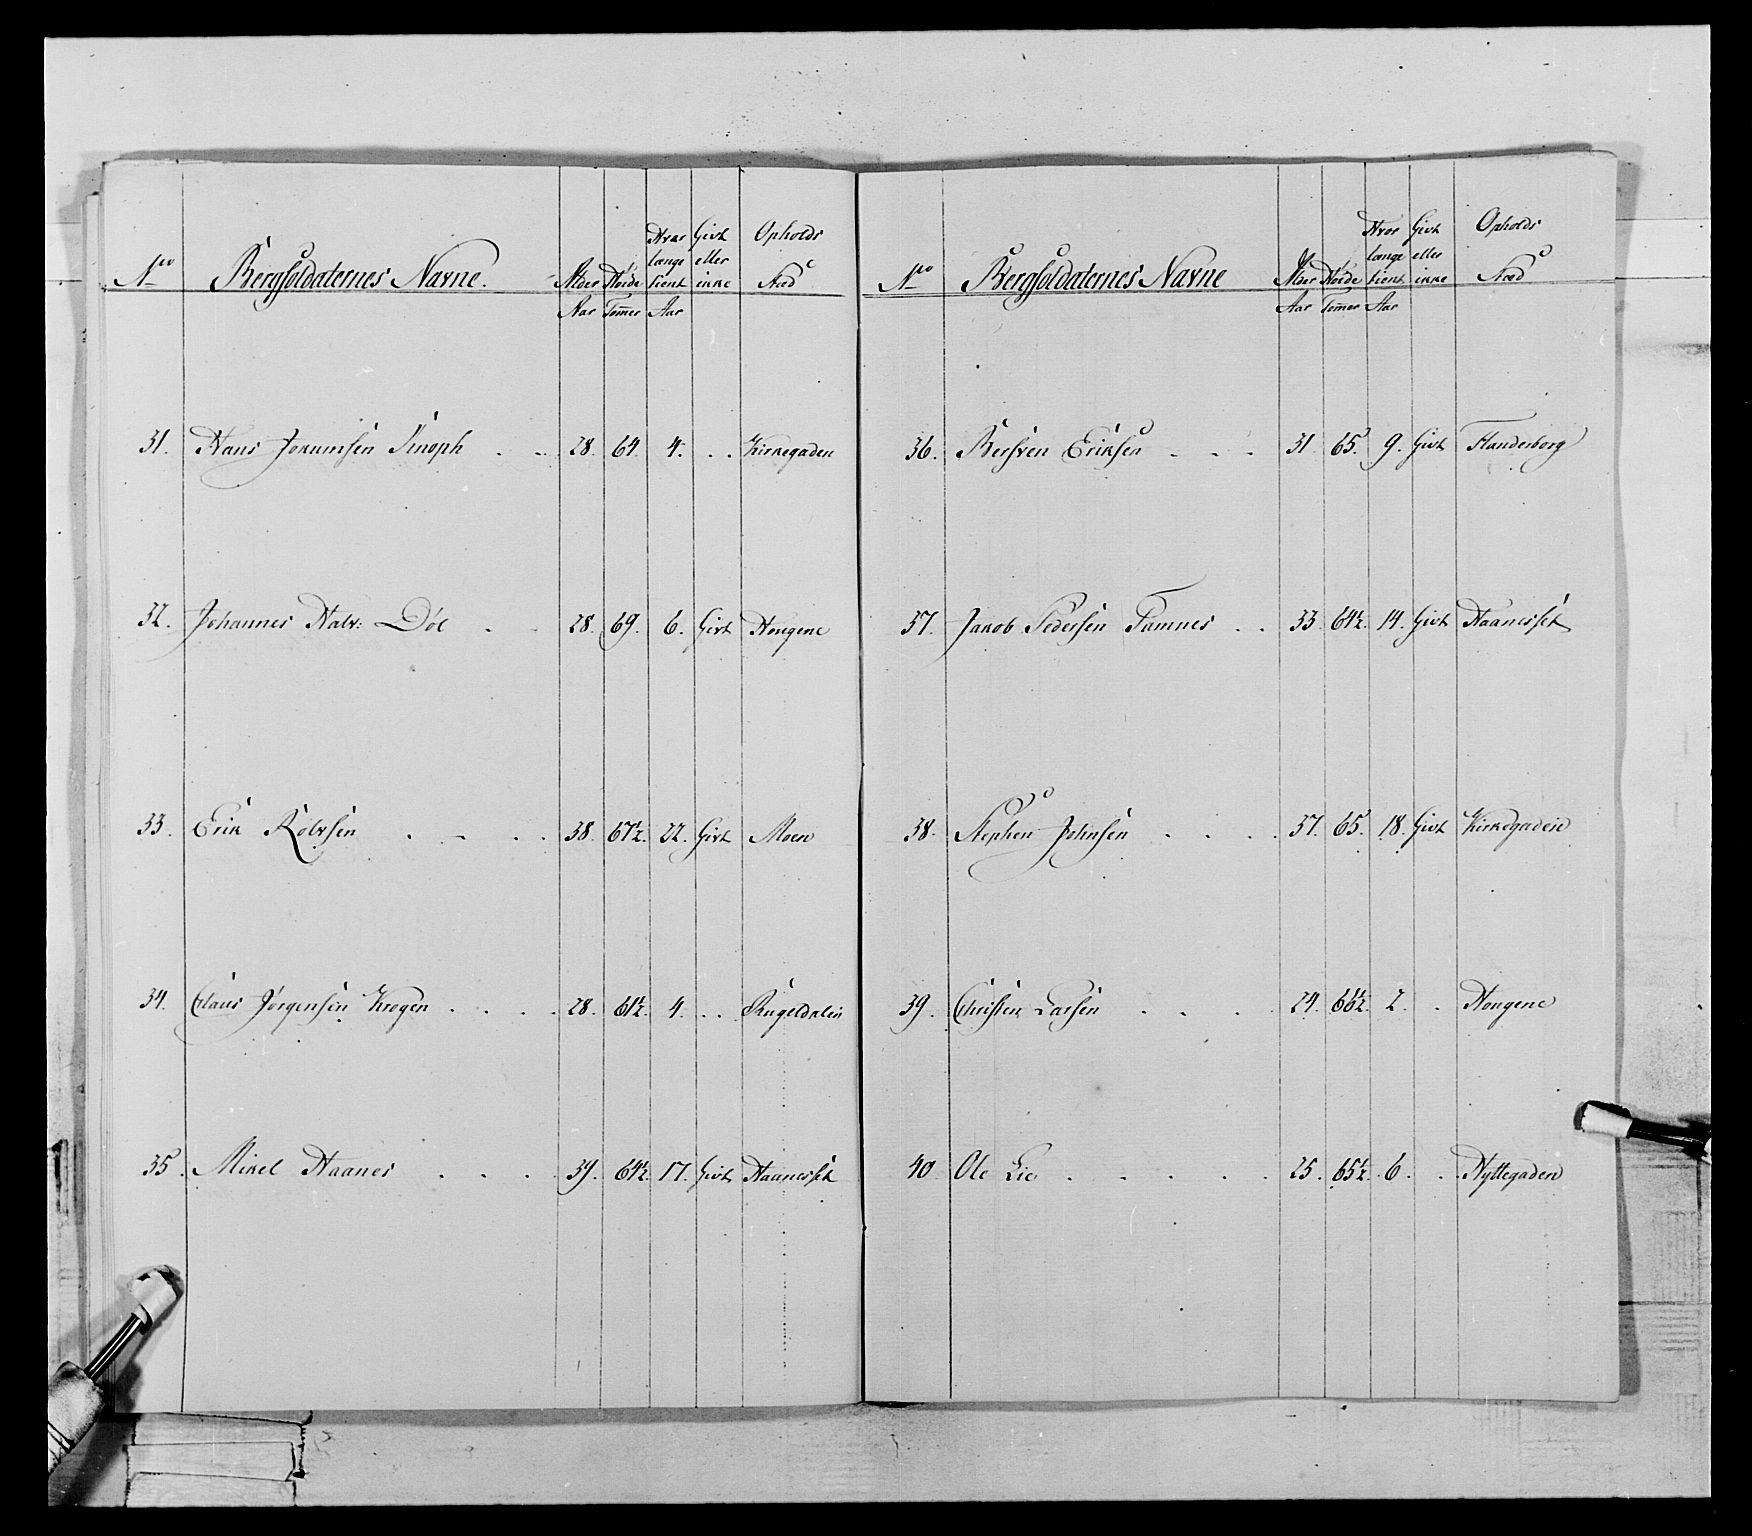 No Bergsoldaternes Navne. Alder Aar Høide Tommer Hvor længe tient Aar Givt eller ikke Opholds Stæd
31. Hans Jokumsen Sinoph . . 28. 64 4. . . Kirkegaden
32. Johannes Halv: Døl . . 28. 69. 6. Givt Hougene
33. Erik Rolvsen . . . . 38. 67½. 22. Givt Moen
34. Claus Jørgensen Krogen . . . . 28. 61½. 4. . . Rugeldalen
35. Mikel Haanes . . . . 39. 64½. 17. Givt Haanesset
No Bergsoldaternes Navne Alder Aar Høide Tommer Hvor længe tient Aar Givt eller ikke Opholds Stæd
36. Bersven Eriksen . . . 31 65. 9. Givt Flanderborg
37. Jakob Pedersen Tamnes . . 33. 64½. 14. Givt Haanesset
38. Stephen Johnsen . . . . 37. 65. 18. Givt Kirkegaden
39. Christen Larsen . . . . 24. 66½. 2. . Hougene
40 Ole Lie . . . . . 25. 65½. 6. . Hyttegaden